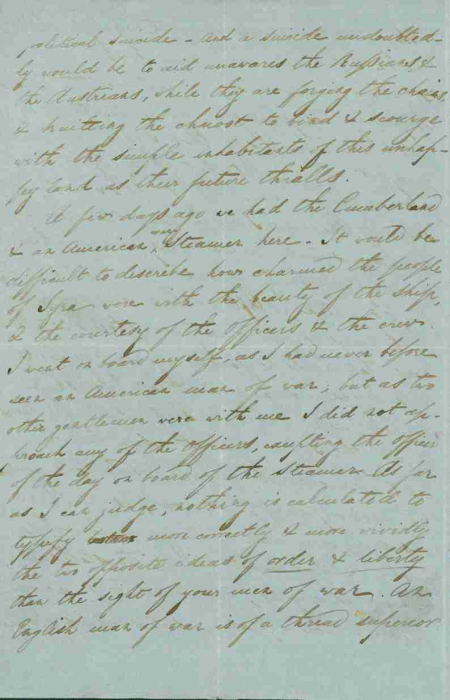 political suicide - and a suicide undoubted-
ly would be to aid unawares the Russians &
the Austrians, while they are forging the chains,
& knitting the to bind & scourge
with the simple inhabitants of this unhap-
py land as their future thralls.
A few days ago we had the Cumberland
& an American war Steamer here. It would be
difficult to describe how charmed the people
of Syra were with the beauty of the ship,
& the courtesy of the Officers & the crew.
I went on board myself, as I had never before
seen an American man of war; but as two
other gentlemen were with me I did not ap-
proach any of the Officers, excepting the officer
of the day on board of the Steamer. As far
as I can judge, nothing is calculated to
typify more correctly & more vividly
the two opposite ideas of order & liberty
than the sight of your men of war. An
English man of war is of a thread superior